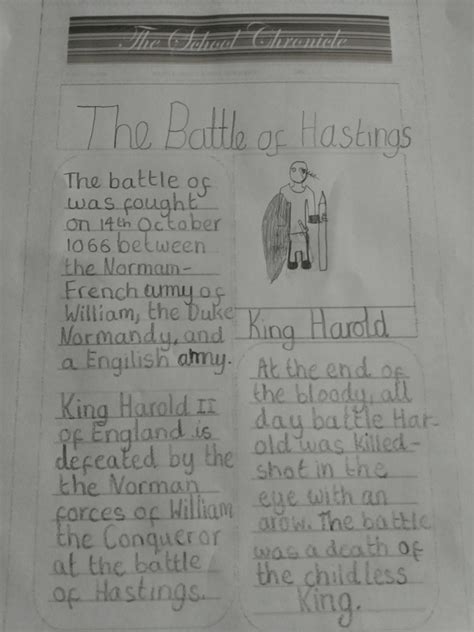 The School Chronicle
The Battle of Hastings
The battle of
was fought
on 14th October
1066 between
the Norman-
French army of
William, the Duke
Normandy, and
a Engilish army.
King Harold II
of England is
defeated by the
the Norman
forces of William
the Conqueror
at the battle
of Hastings.
King Harold
At the end of
the bloody, all
day battle Har-
old was killed-
shot in the
eye with an
arow. The battle
was a death of
the childless
King.